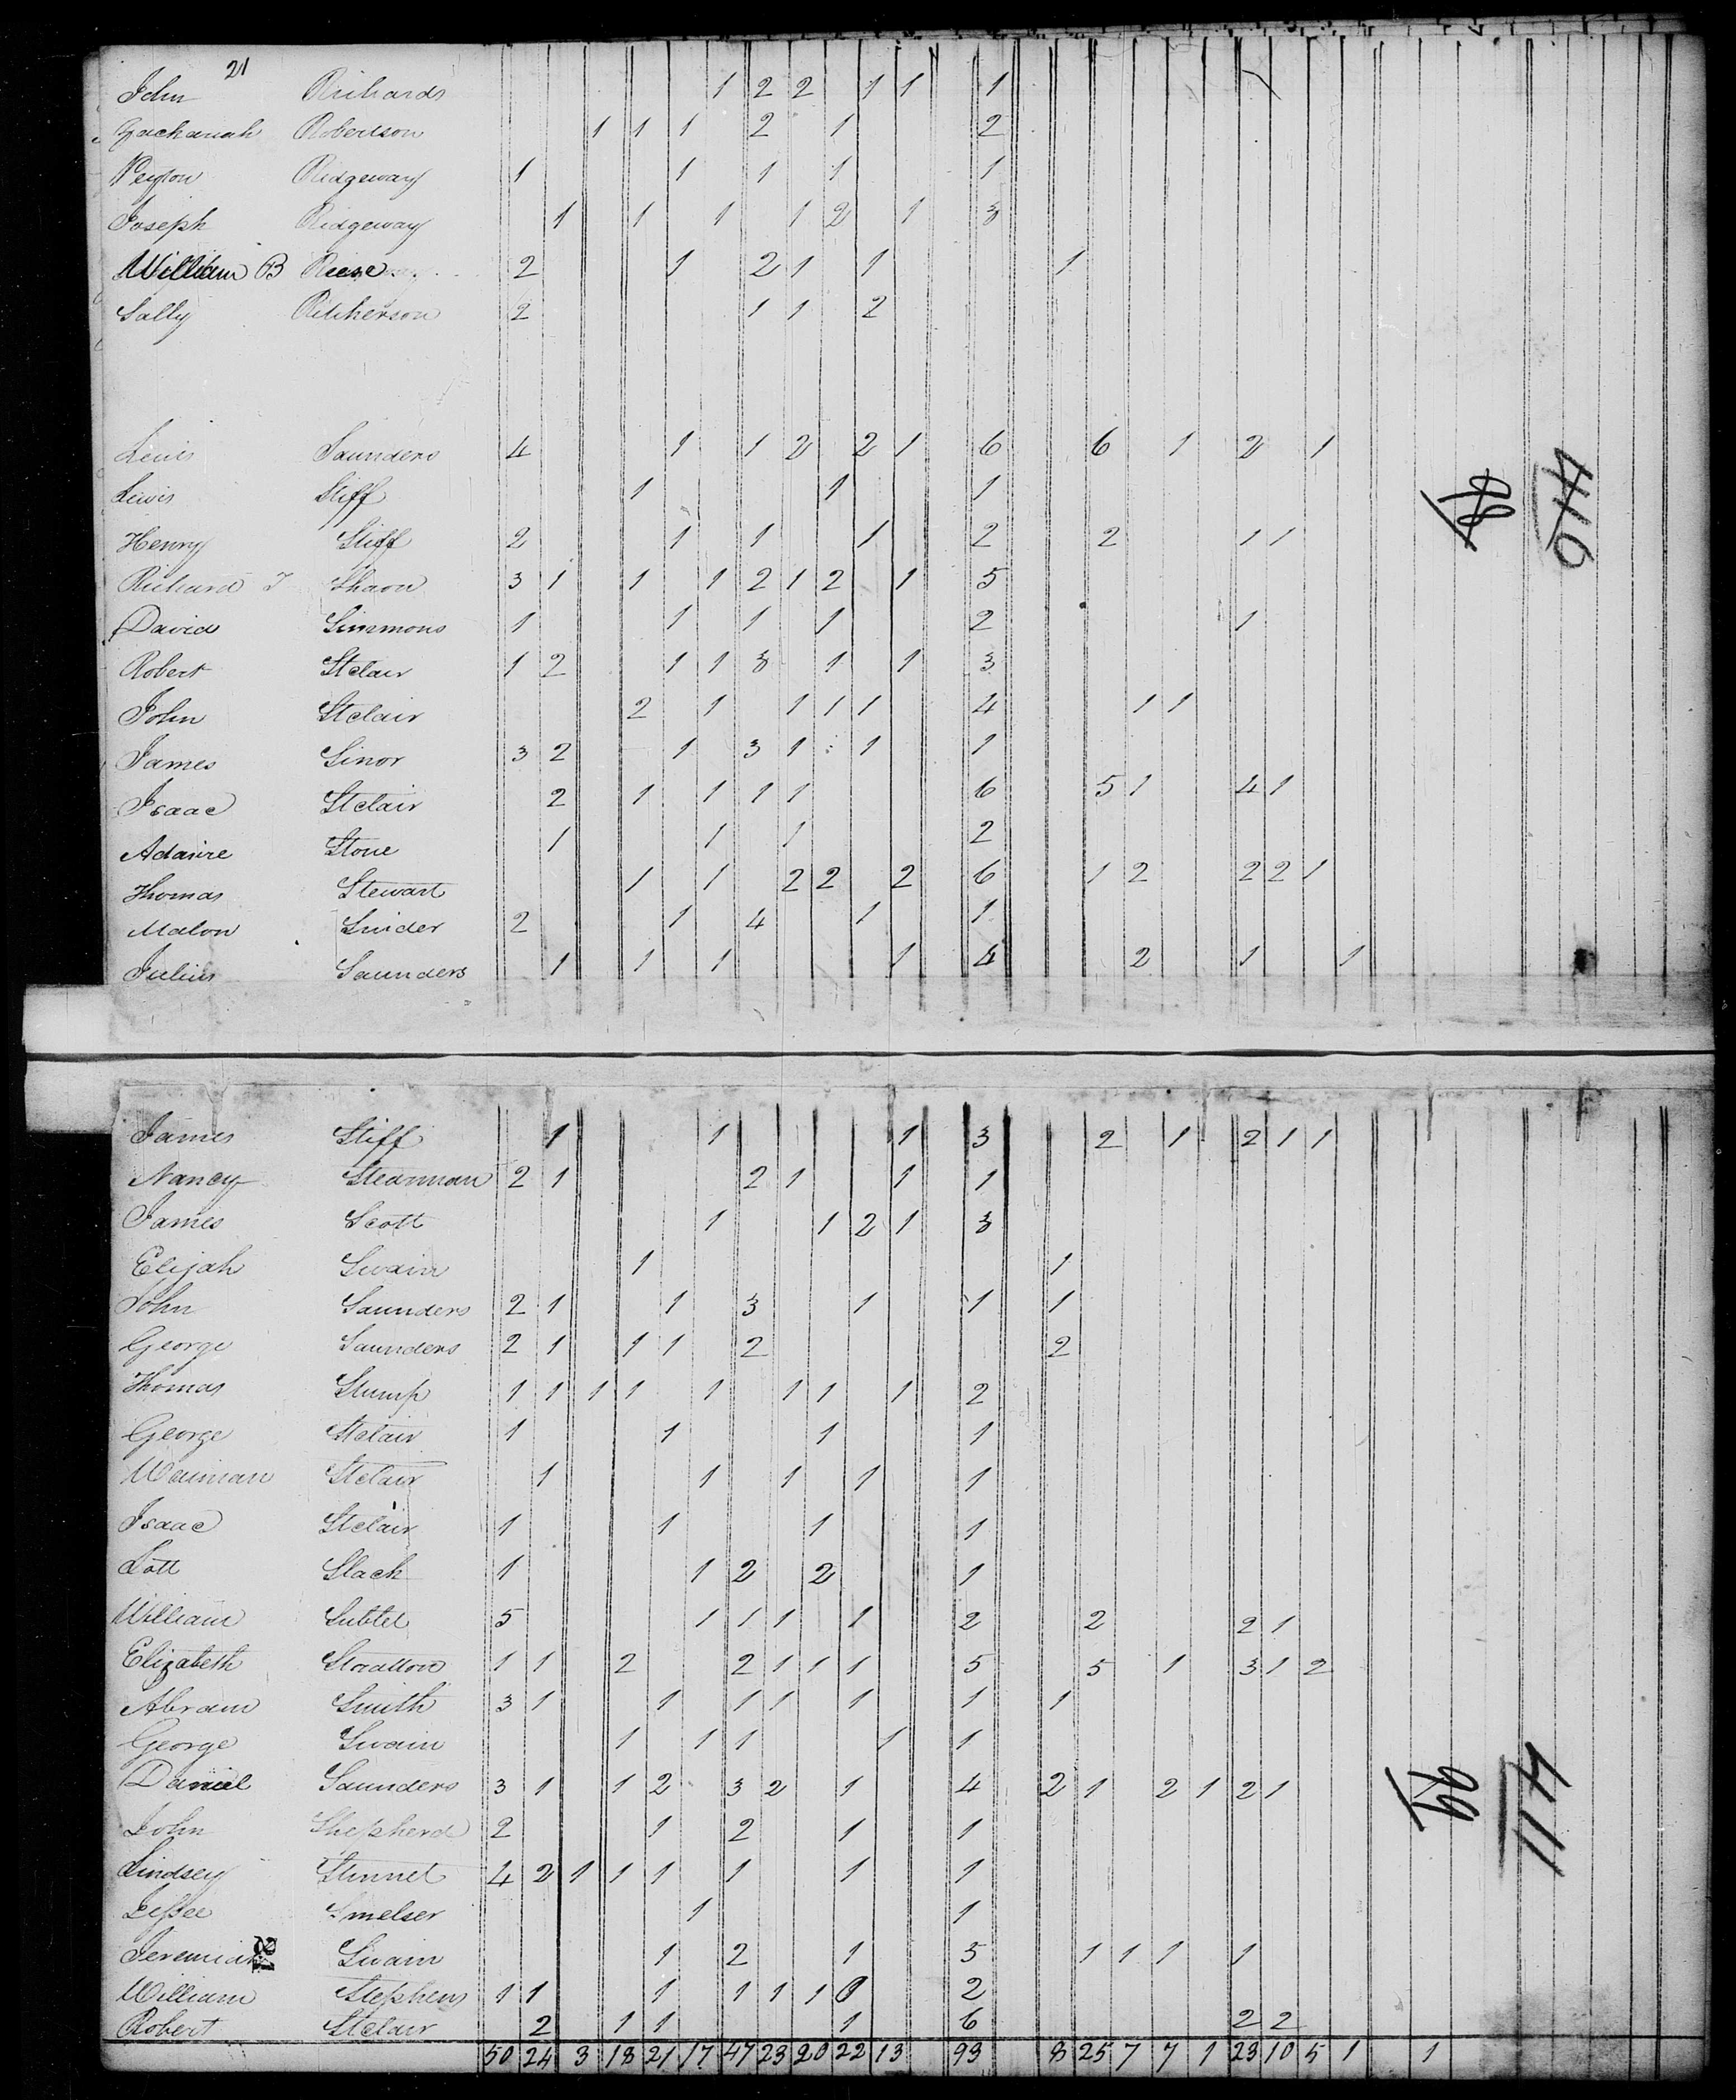 21
John Richards 1 2 2 1 1 1
Zachariah Robertson 1 1 1 2 1 2
Peyton Ridgeway 1 1 1 1 1
Joseph Ridgeway 1 1 1 1 2 1 3
William B Reese 2 1 2 1 1 1
Sally Ritcherson 2 1 1 2
Lewis Saunders 4 1 1 2 2 1 6 6 1 2 1
Lewis Stiff 1 1 1
Henry Stiff 2 1 1 1 2 2 1 1
Richard T Sharon 3 1 1 1 2 1 2 1 5
David Simmons 1 1 1 1 2 1
Robert Stclair 1 2 1 1 3 1 1 3
John Stclair 2 1 1 1 1 4 1 1
James Sinor 3 2 1 3 1 1 1
Isaac Stclair 2 1 1 1 1 6 5 1 4 1
Stone 1 1 1 2
Thomas Stewart 1 1 2 2 2 6 1 2 2 2 1
Malon Snider 2 1 4 1 1
Julius Saunders 1 1 1 1 4 2 1 1
James Stiff 1 1 1 3 2 1 2 1 1
Nancy Stearman 2 1 2 1 1 1
James Scott 1 1 2 1 3
Elijah Swain 1 1
John Saunders 2 1 1 3 1 1 1
George Saunders 2 1 1 1 2 2
Thomas Stump 1 1 1 1 1 1 1 1 2
George Stclair 1 1 1 1
Stclair 1 1 1 1 1
Isaac Stclair 1 1 1 1
Lott Slack 1 1 2 2 1
William 5 1 1 1 1 2 2 2 1
Elizabeth Stratton 1 1 2 2 1 1 1 5 5 1 3 1 2
Abram Smith 3 1 1 1 1 1 1 1
George Swain 1 1 1 1 1
Daniel Saunders 3 1 1 2 3 2 1 4 2 1 2 1 2 1
John Shepherd 2 1 2 1 1
Lindsey Stinnet 4 2 1 1 1 1 1 1
Jessee Smelser 1 1
Jeremiah Swain 1 2 1 5 1 1 1 1
William Stephens 1 1 1 1 1 1 0 2
Robert Stclair 2 1 1 1 6 2 2
50 24 3 18 21 17 47 23 20 22 13 93 8 25 7 7 1 23 10 5 1 1